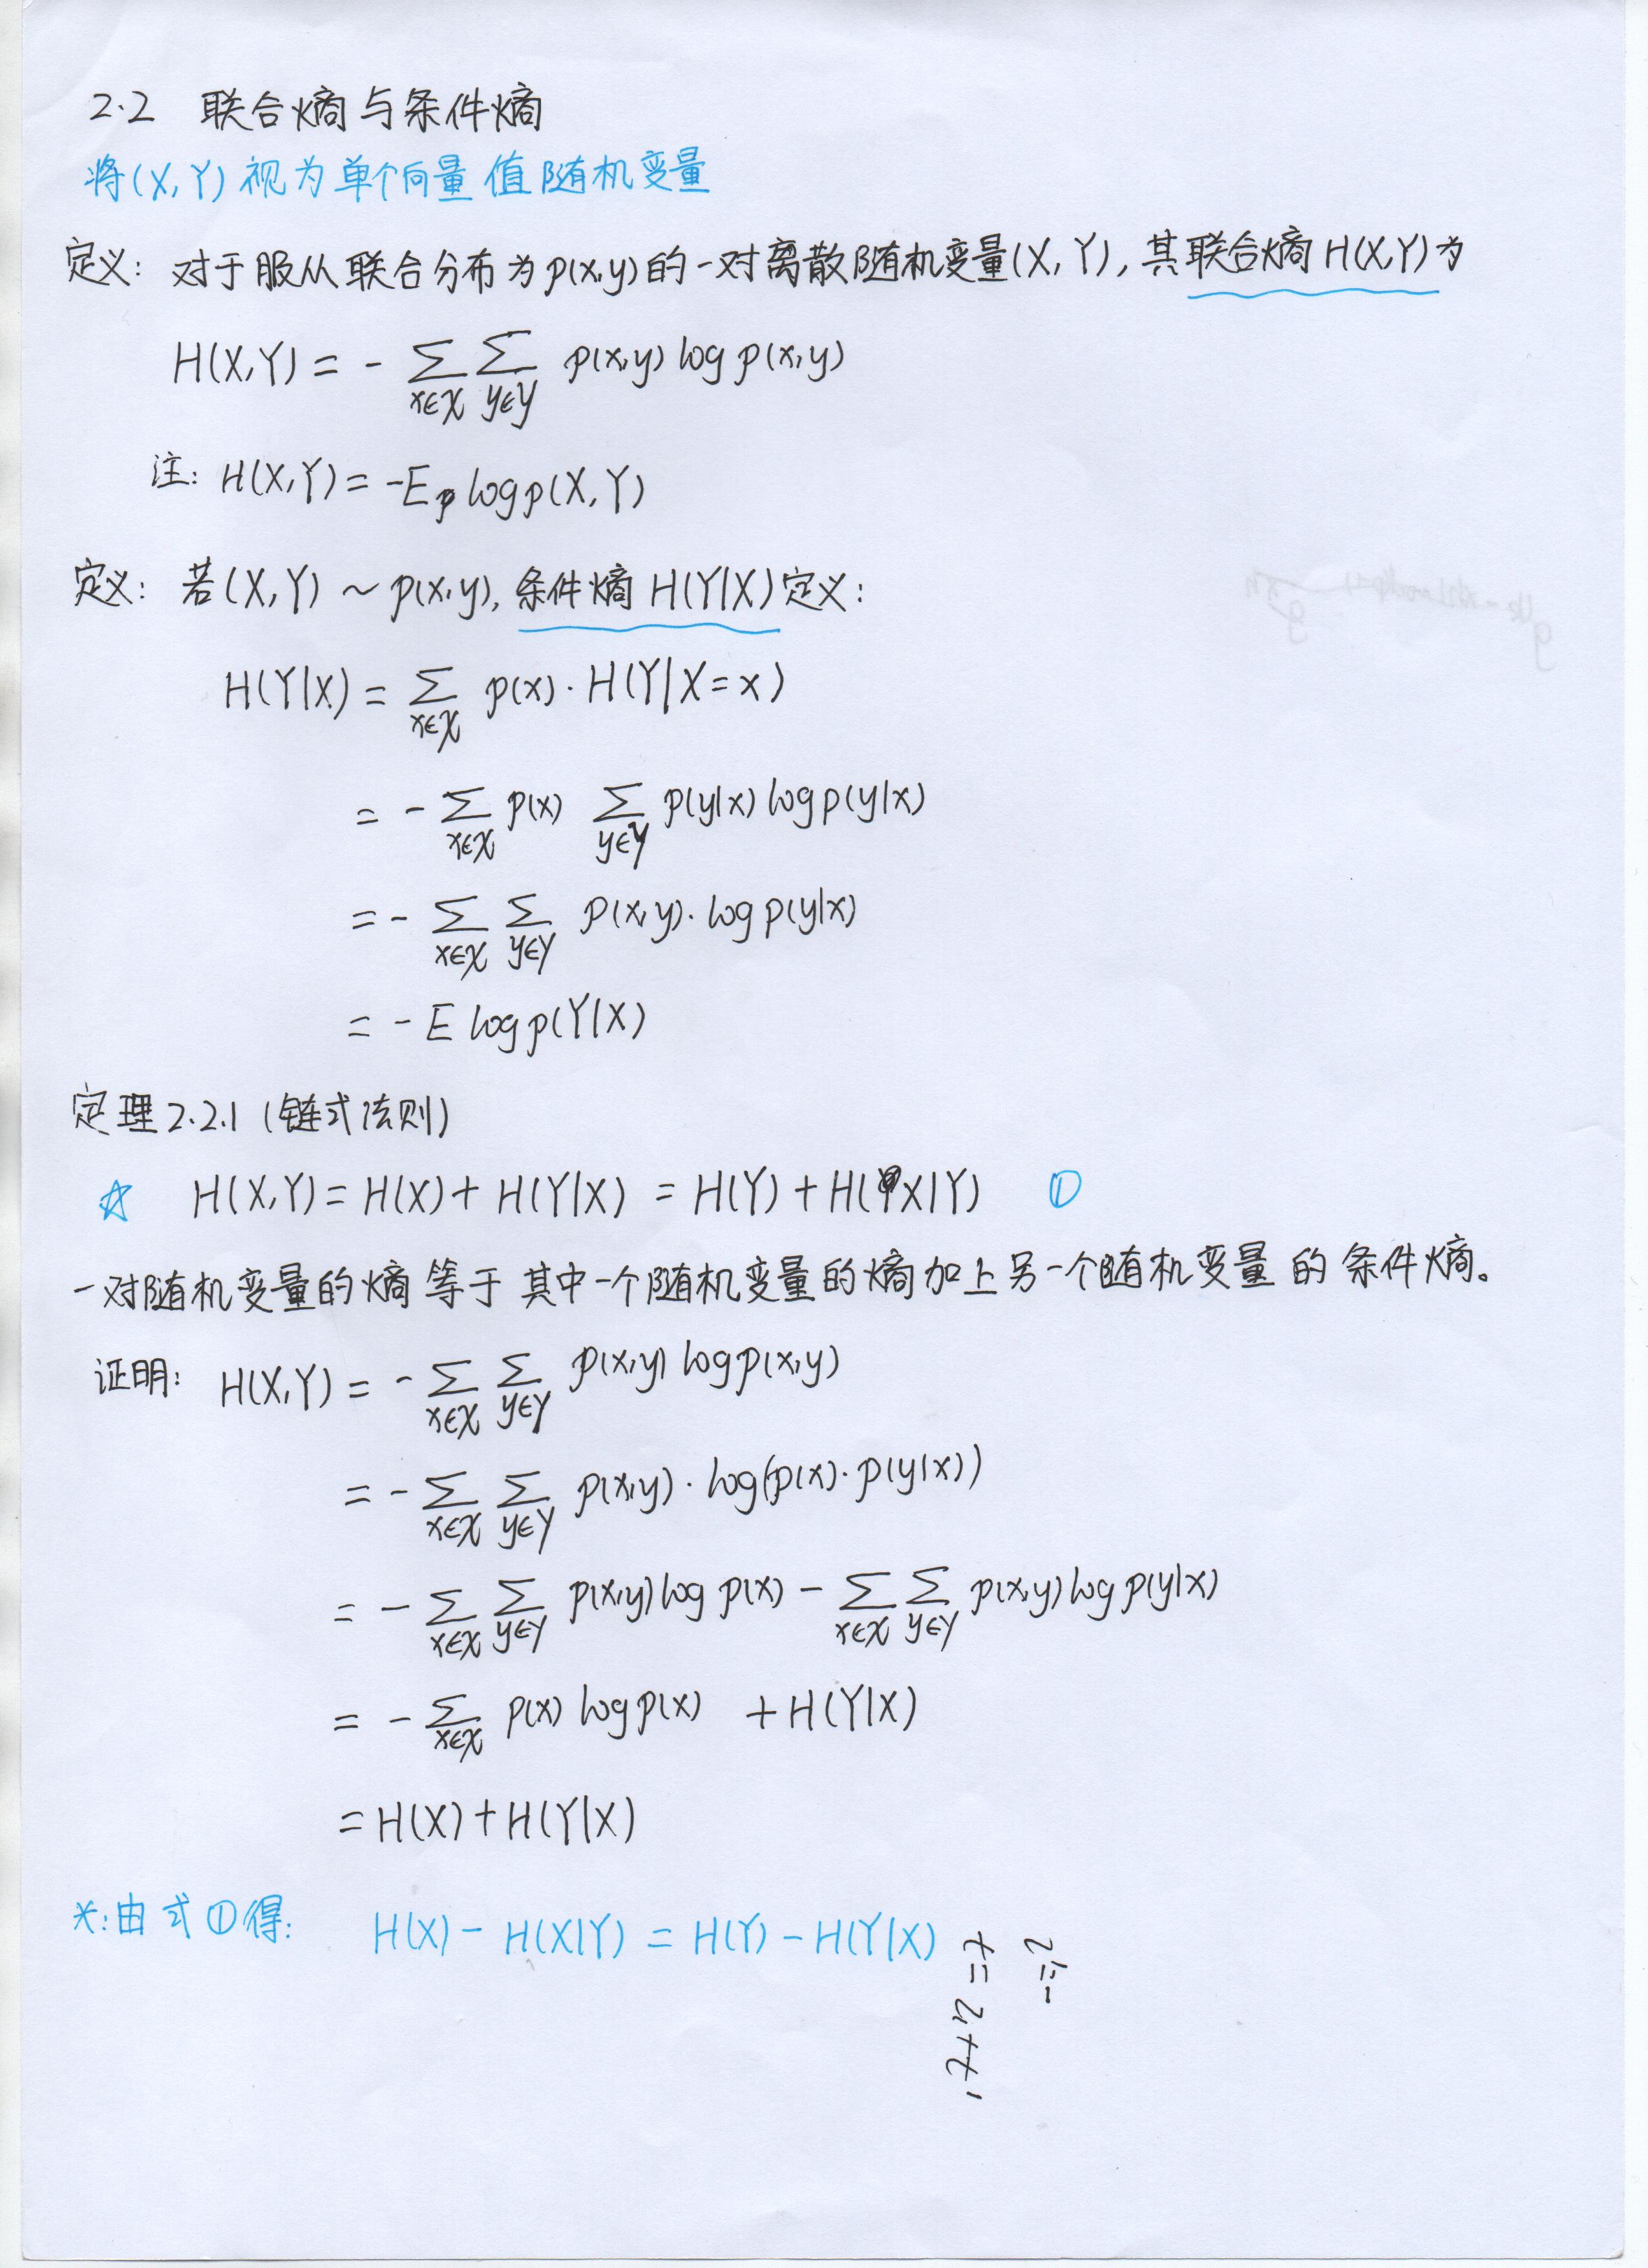 2.2 联合熵与条件熵
将(X,Y)视为单个向量值随机变量
定义: 对于服从联合分布为p(x,y)的一对离散随机变量(X,Y), 其联合熵H(X,Y)为
H(X,Y) = - ∑_{x∈𝒳} ∑_{y∈𝒴} p(x,y) log p(x,y)
注: H(X,Y) = -E_p log p(X,Y)
定义: 若(X,Y) ~ p(x,y), 条件熵H(Y|X)定义:
H(Y|X) = ∑_{x∈𝒳} p(x)·H(Y|X=x)
= - ∑_{x∈𝒳} p(x) ∑_{y∈𝒴} p(y|x) log p(y|x)
= - ∑_{x∈𝒳} ∑_{y∈𝒴} p(x,y)·log p(y|x)
= - E log p(Y|X)
定理2.2.1 (链式法则)
☆ H(X,Y) = H(X) + H(Y|X) = H(Y) + H(X|Y) ①
一对随机变量的熵等于其中一个随机变量的熵加上另一个随机变量的条件熵。
证明: H(X,Y) = - ∑_{x∈𝒳} ∑_{y∈𝒴} p(x,y) log p(x,y)
= - ∑_{x∈𝒳} ∑_{y∈𝒴} p(x,y)·log(p(x)·p(y|x))
= - ∑_{x∈𝒳} ∑_{y∈𝒴} p(x,y) log p(x) - ∑_{x∈𝒳} ∑_{y∈𝒴} p(x,y) log p(y|x)
= - ∑_{x∈𝒳} p(x) log p(x) + H(Y|X)
= H(X) + H(Y|X)
*: 由式①得: H(X) - H(X|Y) = H(Y) - H(Y|X)